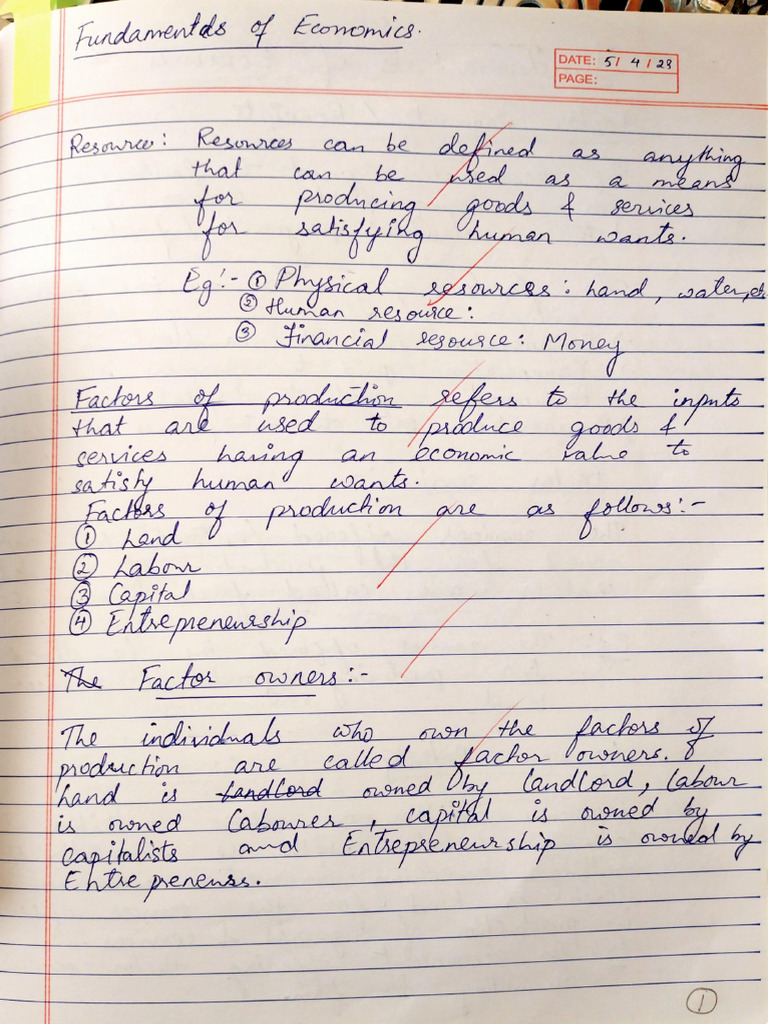 Fundamentals of Economics.
DATE: 5/ 4 / 23
PAGE:
Resource: Resources can be defined as anything
that can be used as a means
for producing goods & services
for satisfying human wants.
Eg:- ① Physical resources: Land, water, etc
② Human resource:
③ Financial resource: Money
Factors of production refers to the inputs
that are used to produce goods &
services having an economic value to
satisfy human wants.
Factors of production are as follows:-
① Land
② Labour
③ Capital
④ Entrepreneurship
The Factor owners:-
The individuals who own the factors of
production are called factor owners.
Land is Landlord owned by landlord, labour
is owned Labourer, capital is owned by
capitalists and Entrepreneurship is owned by
Entrepreneurs.
1